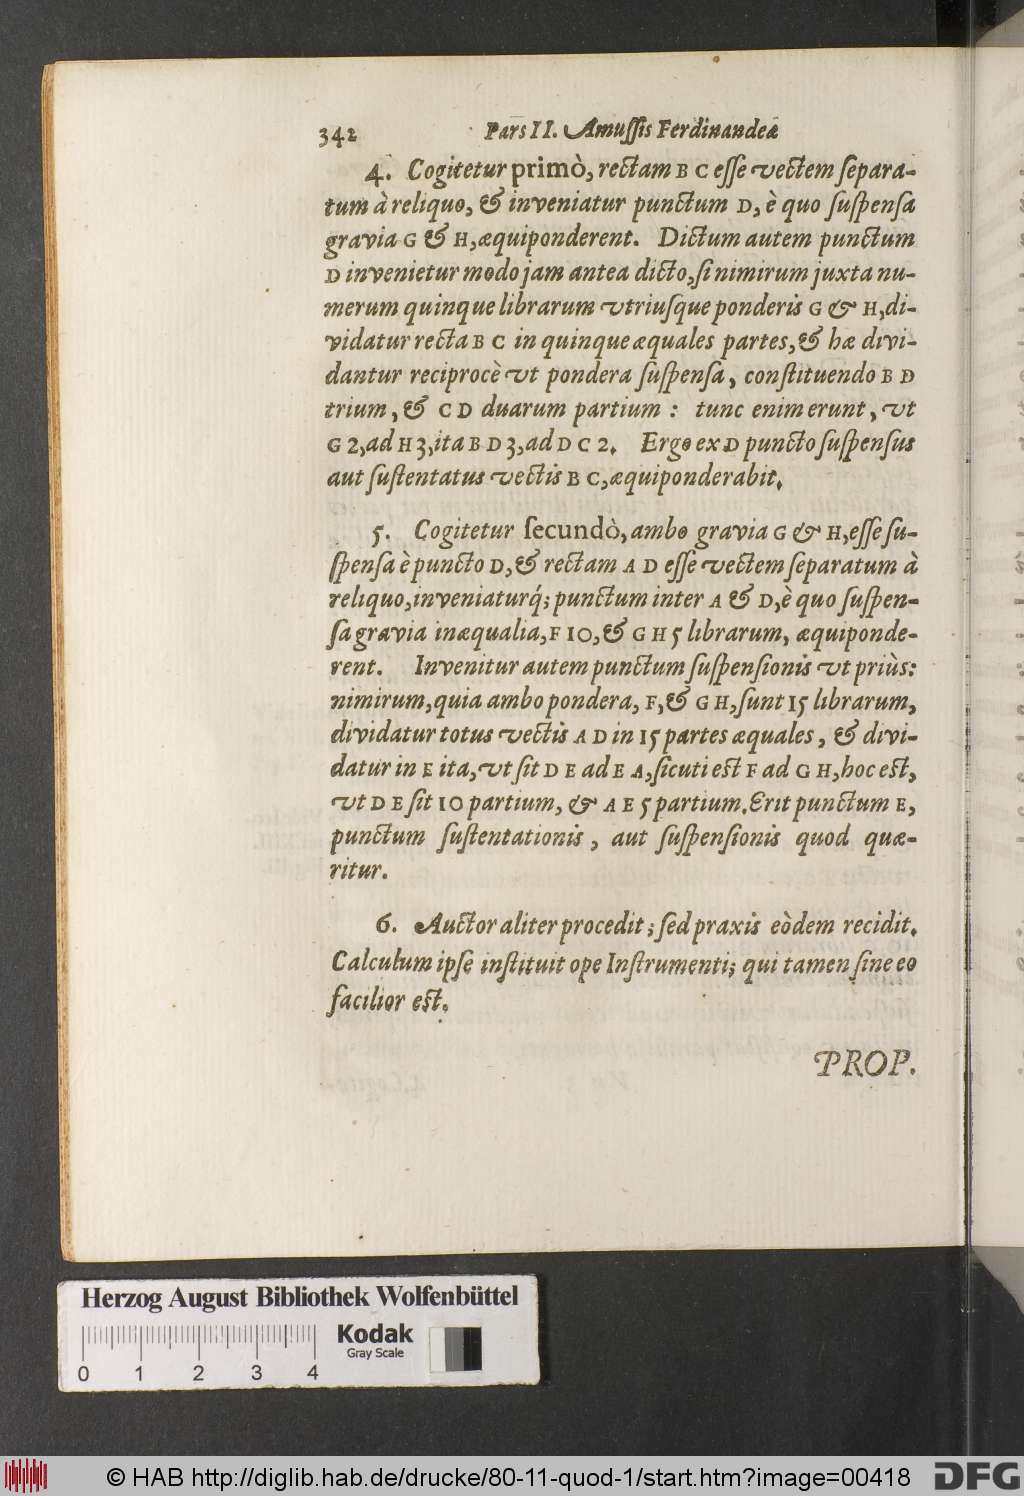 342 Pars II. Amussis Ferdinandeæ
4. Cogitetur primò, rectam B C esse vectem separa-
tum à reliquo, & inveniatur punctum D, è quo suspensa
gravia G & H, æquiponderent. Dictum autem punctum
D invenietur modo jam antea dicto, si nimirum juxta nu-
merum quinque librarum vtriusque ponderis G & H, di-
vidatur recta B C in quinque æquales partes, & hæ divi-
dantur reciprocè vt pondera suspensa, constituendo B D
trium, & C D duarum partium : tunc enim erunt, vt
G 2, ad H 3, ita B D 3, ad D C 2. Ergo ex D puncto suspensus
aut sustentatus vectis B C, æquiponderabit.
5. Cogitetur secundò, ambo gravia G & H, esse su-
spensa è puncto D, & rectam A D esse vectem separatum à
reliquo, inveniaturq́; punctum inter A & D, è quo suspen-
sa gravia inæqualia, F 10, & G H 5 librarum, æquiponde-
rent. Invenitur autem punctum suspensionis vt priùs:
nimirum, quia ambo pondera, F, & G H, sunt 15 librarum,
dividatur totus vectis A D in 15 partes æquales, & divi-
datur in E ita, vt sit D E ad E A, sicuti est F ad G H, hoc est,
vt D E sit 10 partium, & A E 5 partium. Erit punctum E,
punctum sustentationis, aut suspensionis quod quæ-
ritur.
6. Auctor aliter procedit; sed praxis eòdem recidit.
Calculum ipse instituit ope Instrumenti; qui tamen sine eo
facilior est.
PROP.
Herzog August Bibliothek Wolfenbüttel
Kodak
Gray Scale
0 1 2 3 4
© HAB http://diglib.hab.de/drucke/80-11-quod-1/start.htm?image=00418
DFG